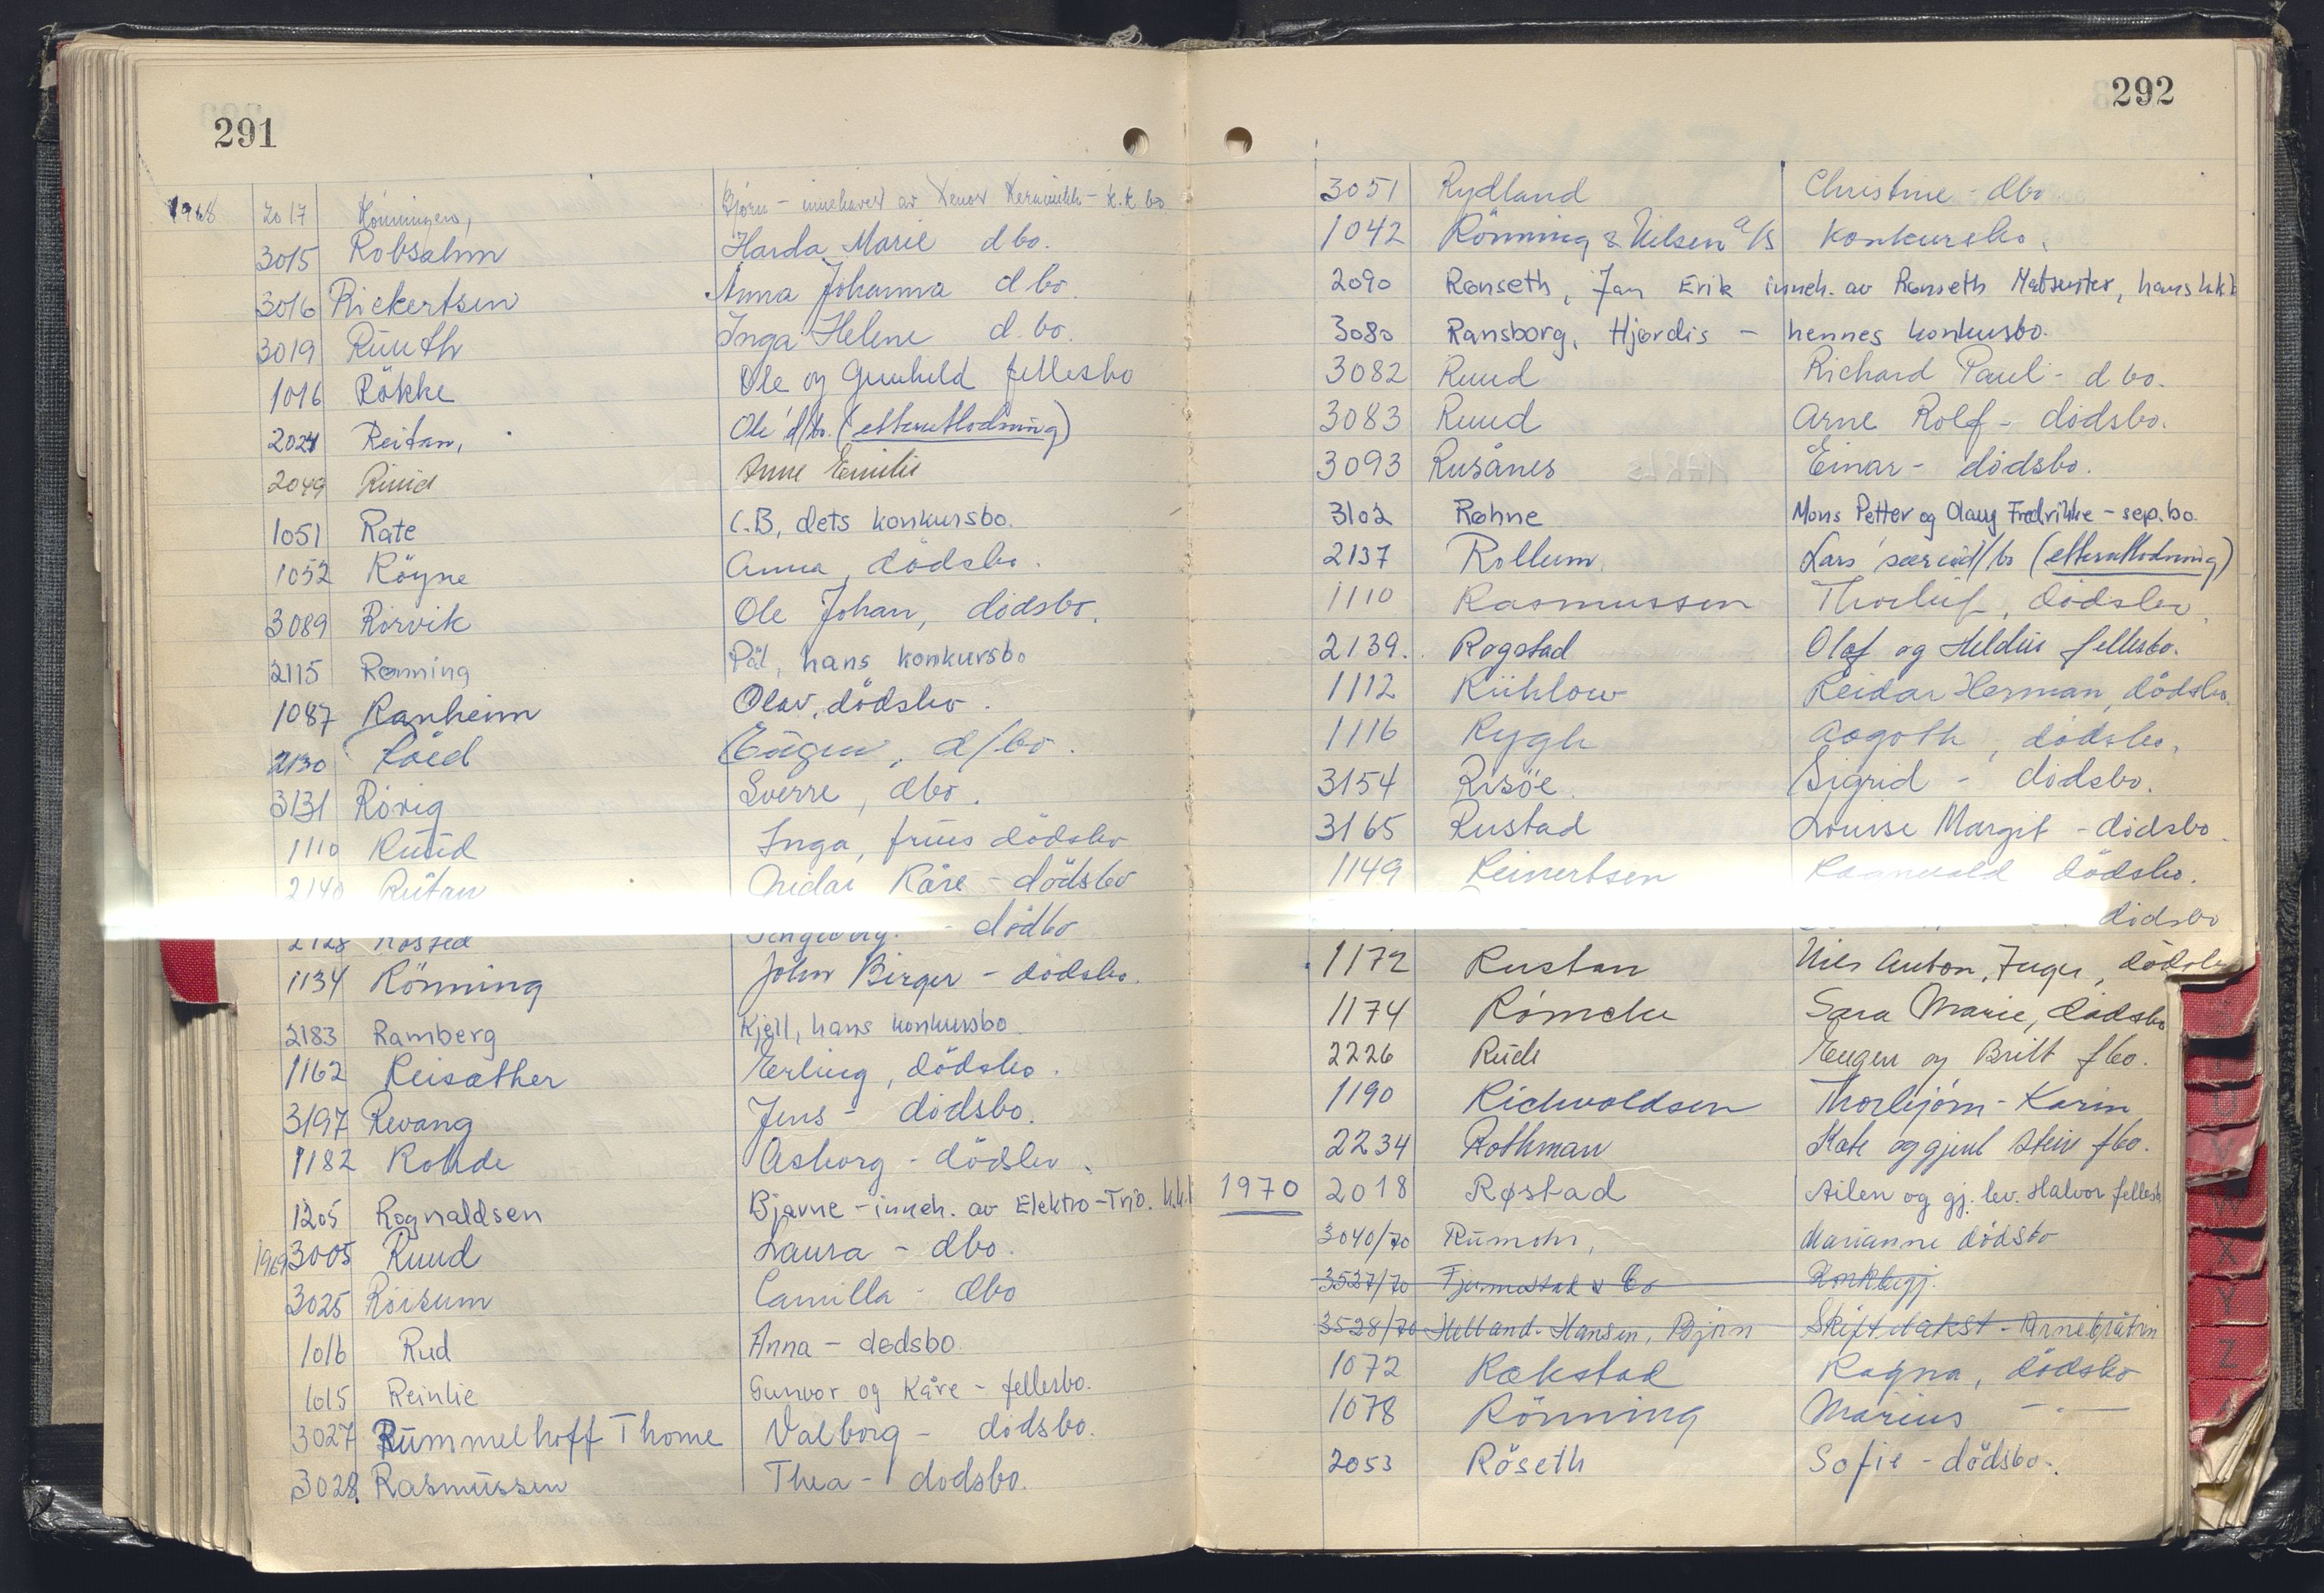 291
1968 2017 Rönningen, Bjørn - innehaver av - k.k.bo
3015 Robsahm Harda Marie dbo.
3016 Rickertsen Anna Johanna dbo.
3019 Ruuth Inga Helene d.bo.
1016 Rökke Ole og Gunhild fellesbo
2024 Reitan, Ole d/bo. (etterutlodning)
2049 Ruud Anne Emilie
1051 Rate C.B, dets konkursbo.
1052 Röyne Anna, dödsbo.
3089 Rörvik Ole Johan, dödsbo.
2115 Rønning Pål, hans konkursbo
1087 Ranheim Olav, dödsbo.
2130 d/bo.
3131 Rövig Sverre, dbo.
1110 Ruud Inga, frues dödsbo
2140 Kåre - dödsbo
2128 - dödbo
1134 Rönning John Birger - dödsbo.
2183 Ramberg Kjell, hans konkursbo
1162 Reisæther Erling, dödsbo.
3197 Revang Jens - dödsbo.
1182 Rohde Asborg - dödsbo.
1205 Rognaldsen Bjarne - inneh. av Elektro-Trio. k.k.
1969 3005 Ruud Laura - dbo.
3025 Röisum Camilla - dbo
1016 Rud Anna - dødsbo.
1015 Reinlie Gunvor og Kåre - fellesbo.
3027 Rummelhoff Thome Valborg - dödsbo.
3028 Rasmussen Thea - dödsbo.
292
3051 Rydland Christine - dbo
1042 Rönning & Nilsen a/s konkursbo.
2090 Rønseth, Jan Erik inneh. av Rønseth Matsenter, hans k.k.b
3080 Ransborg, Hjørdis - hennes konkursbo.
3082 Ruud Richard Paul - dbo.
3083 Ruud Arne Rolf - dödsbo.
3093 Rusånes Einar - dödsbo.
3102 Røhne Mons Petter og Olaug Fredrikke - sep.bo.
2137 Rollum Lars (etterutlodning)
1110 Rasmussen Thorleif, dödsbo.
2139. Rogstad Olaf og fellesbo.
1112 Rühlow Reidar Herman, dödsbo.
1116 Rygh Aagoth, dödsbo.
3154 Risöe. Sigrid - dödsbo.
3165 Rustad Louise Margit - dödsbo.
1149 Reinertsen Ragnvald dödsbo.
dödsbo
1172 Rustan Nils Anton, Inger, dödsbo
1174 Sara Marie, dödsbo
2226 Rude Eugen og Britt fbo.
1190 Richvoldsen Thorbjörn - Karin
2234 Rothman Kate og gjenl Stein fbo.
1970 2018 Røstad Ailen og gj. lev. Halvor fellesb
3040/70 Rumohr, Marianne dödsbo
3527/70 & Co
3528/70 Helland-Hansen, Björn Skiftetakst - Arne
1072 Rækstad Ragna, dödsbo
1078 Rönning Marius - " -
2053 Röseth Sofie - dödsbo.
V
W
X
Y
Z